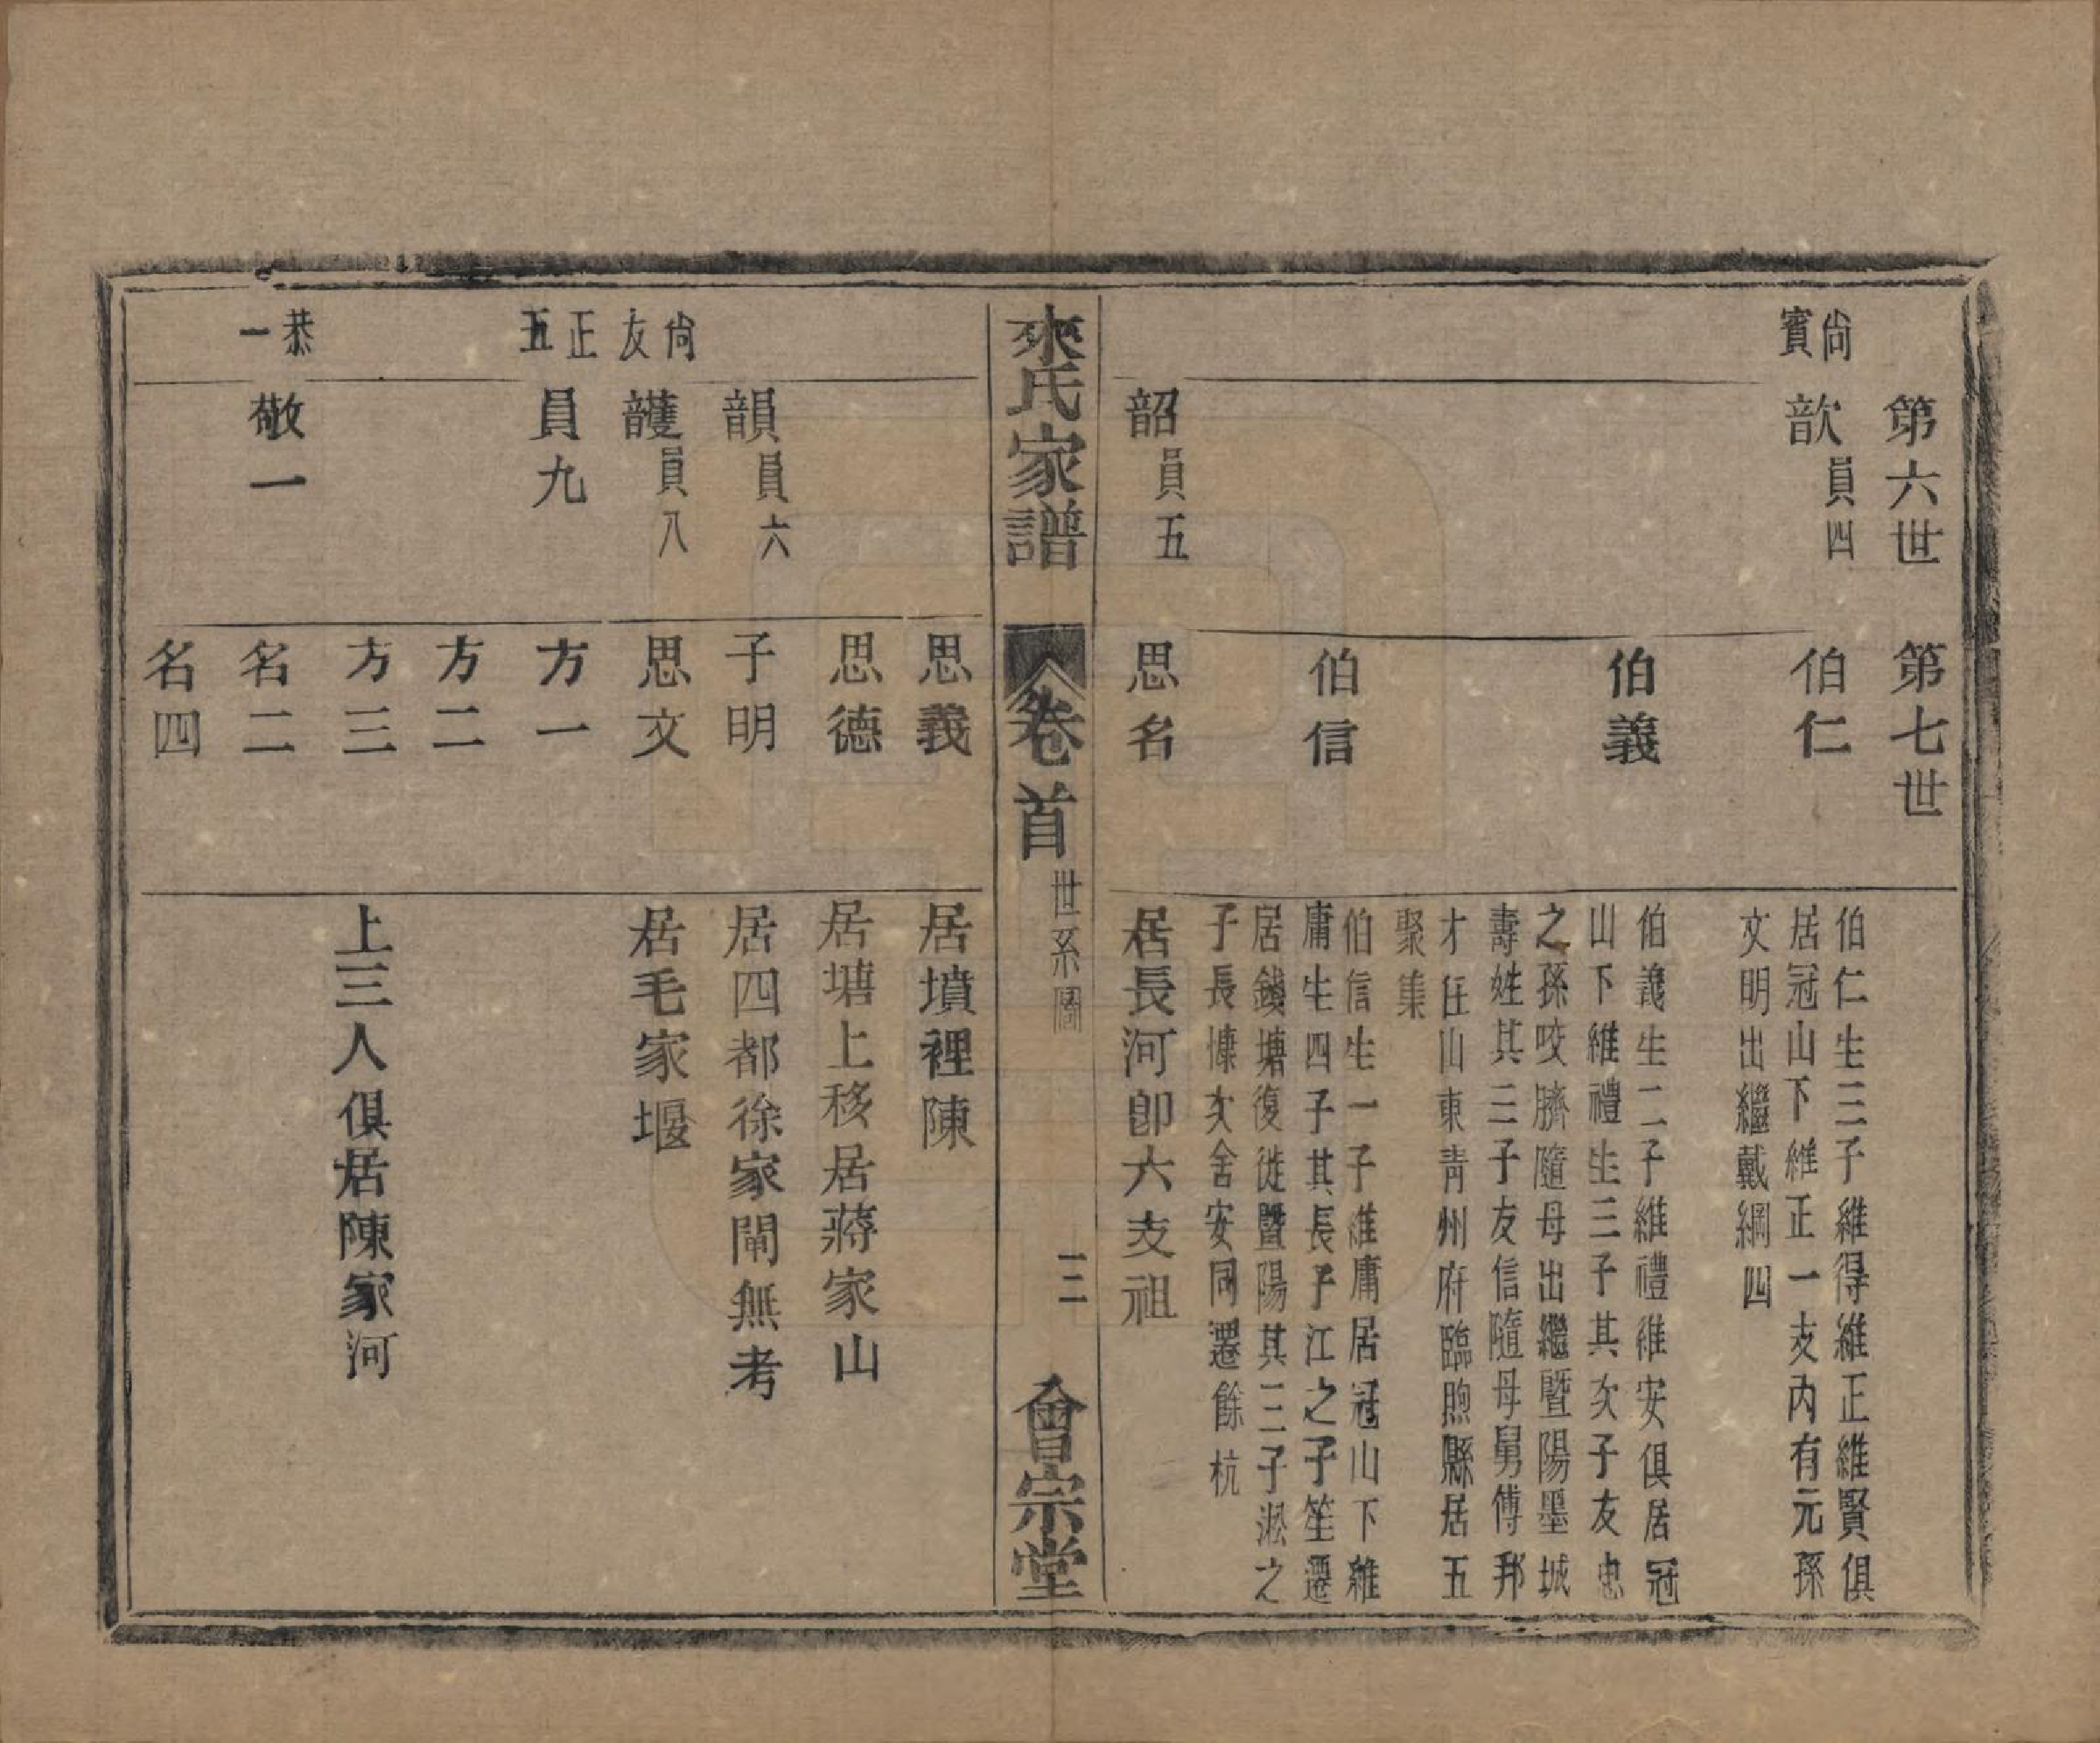 第六世　第七世
尙賓
歆員四
伯仁
伯仁生三子維得維正維賢俱
居冠山下維正一支內有元孫
文明出繼戴綱四
伯義
伯義生二子維禮維安俱居冠
山下維禮生三子其次子友忠
之孫咬臍隨母出繼暨陽墨城
壽姓其三子友信隨母舅傅邦
才任山東青州府臨煦縣居五
聚集
伯信
伯信生一子維庸居冠山下維
庸生四子其長子江之子笙遷
居錢塘復徙暨陽其三子淞之
子長慷次舍安同遷餘杭
韶員五
思名
居長河卽六支祖
來氏家譜　卷首　世系圖　三　會宗堂
思義
居墳裡陳
思德
居塘上移居蔣家山
韻員六
子明
居四都徐家閘無考
尙友
頀員八
思文
居毛家堰
正五
員九
方一
方二
方三
上三人俱居陳家河
恭一
敬一
名二
名四